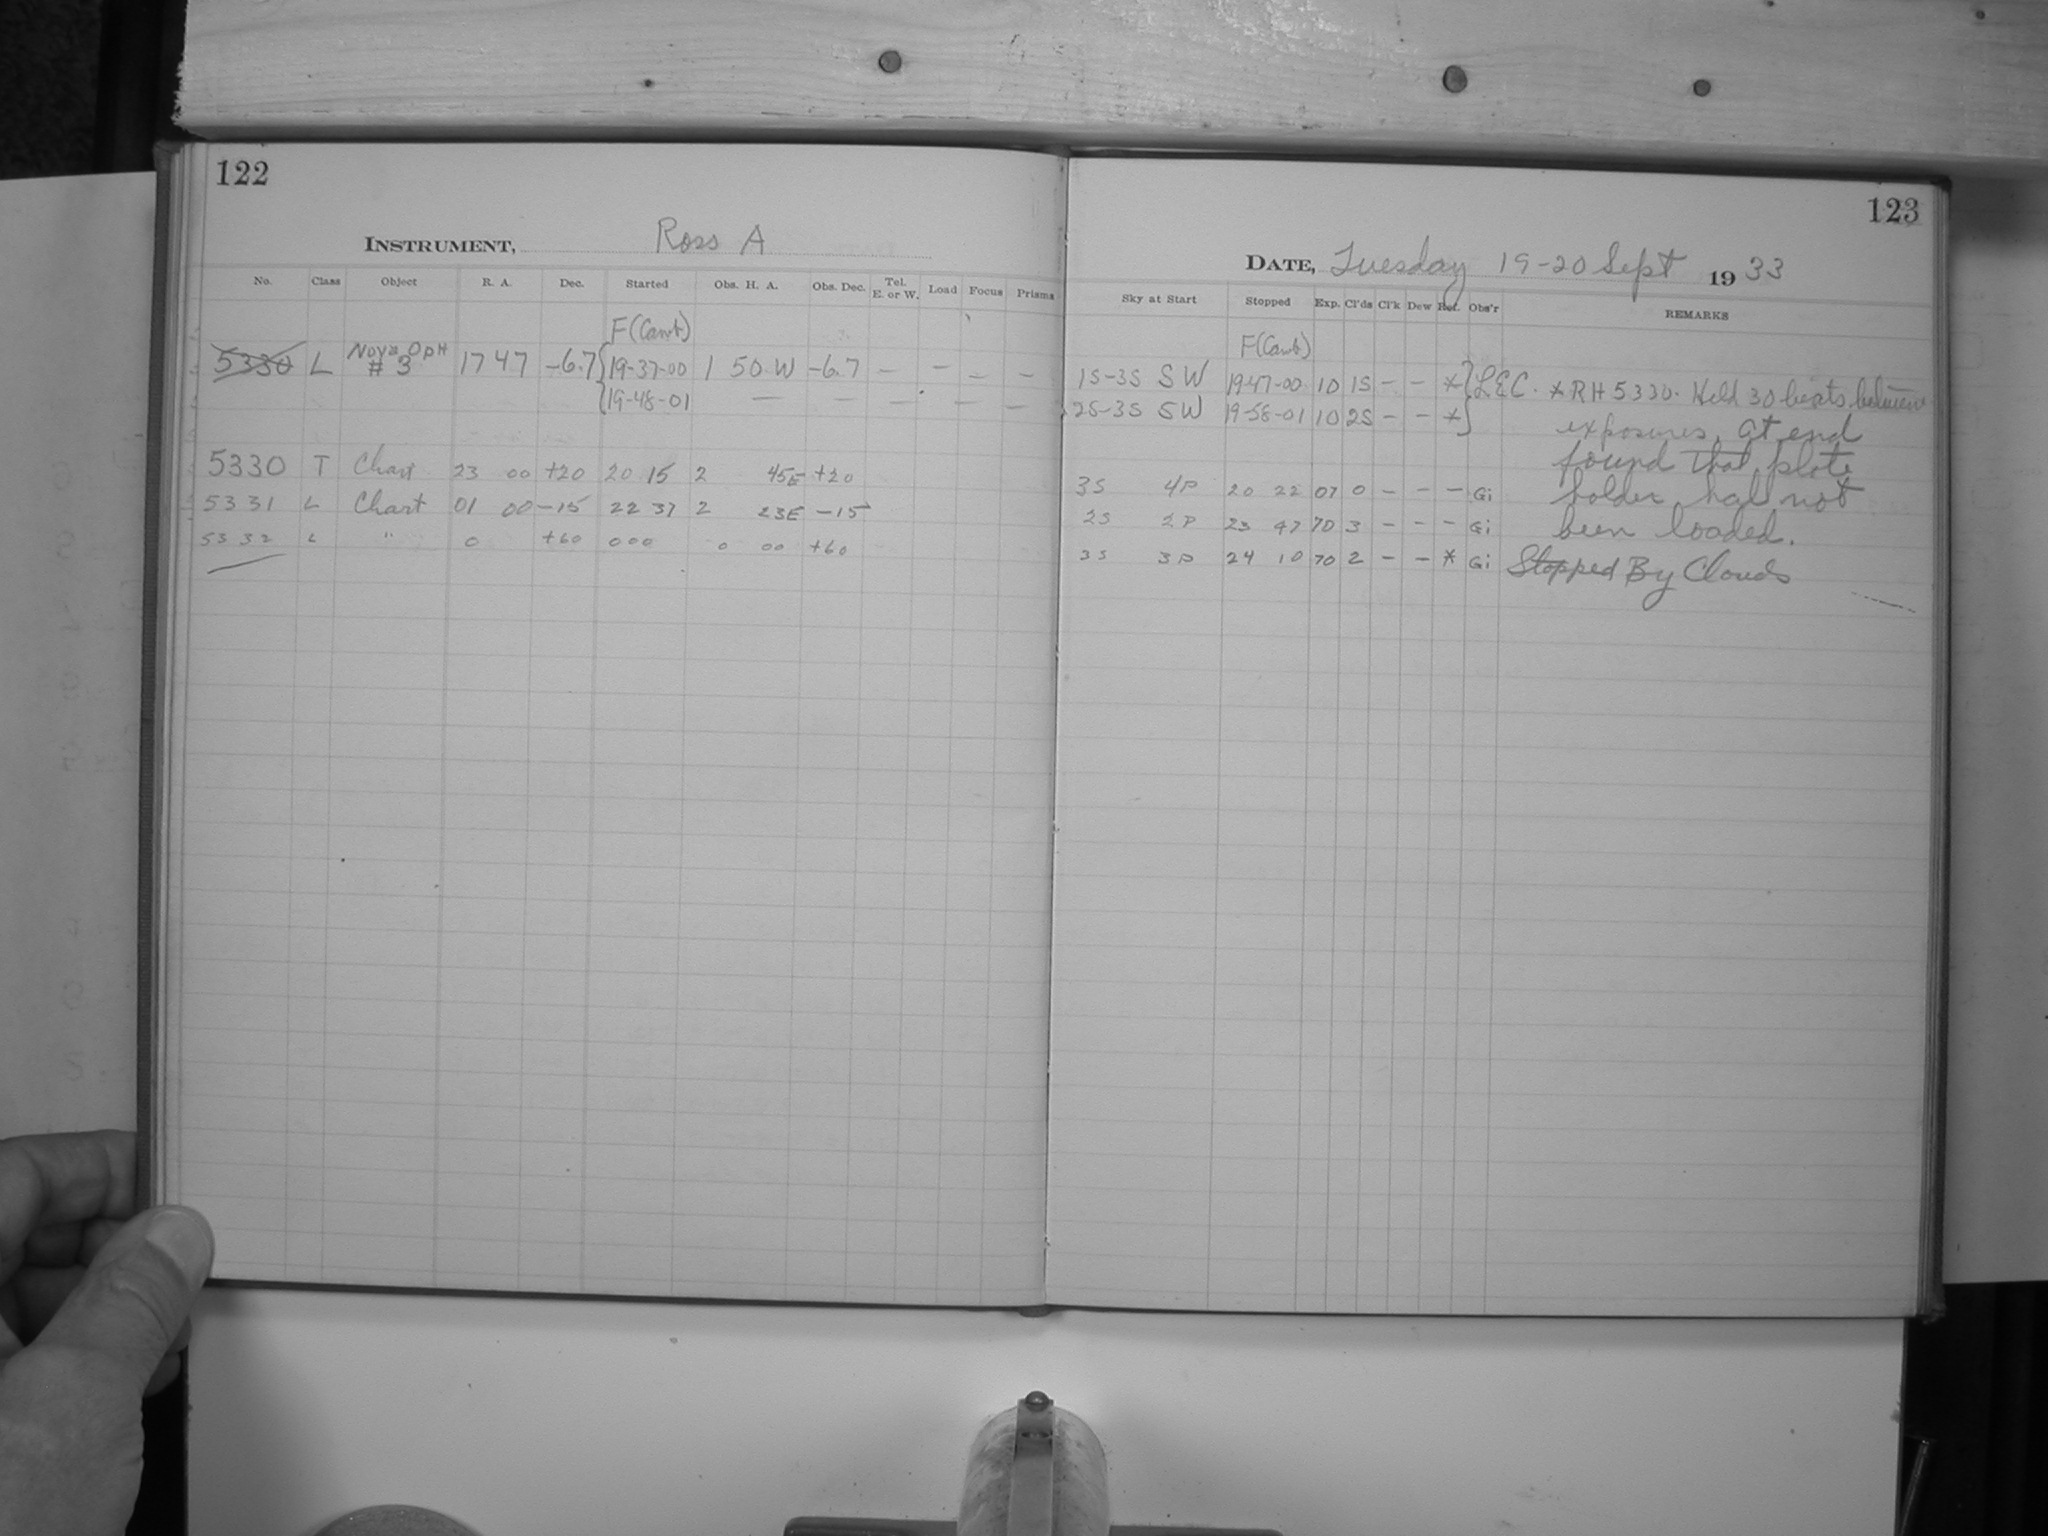 122
INSTRUMENT, Ross A
No. Class Object R. A. Dec. Started Obs. H. A. Obs. Dec. Tel. E. or W. Load Focus Prisms
F(Camb)
5330 L Nova Oph #3 17 47 -6.7 19-37-00 1 50 W -6.7 — — — —
19-48-01 — — — — —
5330 T Chart 23 00 +20 20 15 2 45E +20
5331 L Chart 01 00 -15 22 37 2 23E -15
5332 L " 0 +60 000 0 00 +60
123
DATE, Tuesday 19-20 Sept 1933
Sky at Start Stopped Exp. Cl'ds Cl'k Dew Ref. Obs'r REMARKS
F(Camb)
1S-3S SW 19-47-00 10 1S - - * LEC. *RH 5330. Held 30 beats between
2S-3S SW 19-58-01 10 2S - - * exposures, at end
found that plate
3S 4P 20 22 07 0 - - - Gi holder had not
2S 2P 23 47 70 3 - - - Gi been loaded.
3S 3P 24 10 70 2 - - * Gi Stopped By Clouds